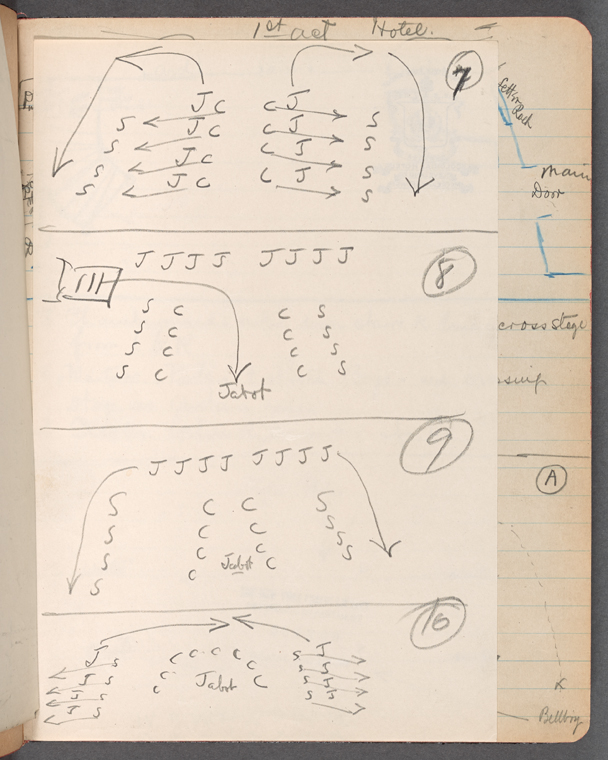 1st act Hotel.
7
J C C J
S J C C J S
S J C C J S
S J C C J S
S S
Main
Door
8
J J J J J J J J
S C C S
S C C S
S C C S
S C C S
Jabot
cross stage
9
J J J J J J J J
S C C S
S C C S
S C C S
S C Jabot C S
A
10
J J
C C C C C C C C
S S S S
J J J S S S
Jabot
Bellboy